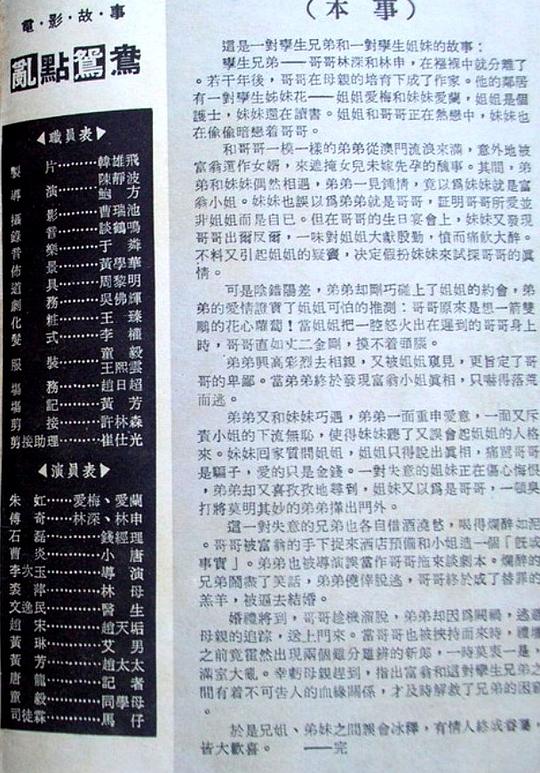 電·影·故·事
亂點鴛鴦
◀職員表▶
製片………韓雄飛
陳靜波
導演………鮑方
攝影………曹瑞池
錄音………談鶴鳴
音樂………于粦
佈景………黃學華
道具………周黎明
劇務………吳佛輝
化粧………王臻
髮式………李權
童毅
服裝………王熙雲
塲務………趙日超
塲記………黃芳
剪接………許林森
剪接助理……崔仕光
◀演員表▶
朱虹……愛梅、愛蘭
傅奇……林深、林申
石磊………錢經理
曹炎………小唐
李次玉………導演
裘萍………林母
文逸民………醫生
趙宋………趙天垢
黃琳………艾男
黃芳………趙太太
唐龍………記者
童毅………同學母
司徒霖………馬仔
（本事）
這是一對孿生兄弟和一對孿生姐妹的故事：
孿生兄弟——哥哥林深和林申，在襁褓中就分離了
。若干年後，哥哥在母親的培育下成了作家。他的鄰居
有一對孿生姊妹花——姐姐愛梅和妹妹愛蘭，姐姐是個
護士，妹妹還在讀書。姐姐和哥哥正在熱戀中，妹妹也
在偷偷暗戀着哥哥。
和哥哥一模一樣的弟弟從澳門流浪來滿，意外地被
富翁選作女婿，來遮掩女兒未嫁先孕的醜事。其間，弟
弟和妹妹偶然相遇，弟弟一見鍾情，竟以爲妹妹就是富
翁小姐。妹妹也誤以爲弟弟就是哥哥，証明哥哥所愛並
非姐姐而是自己。但在哥哥的生日宴會上，妹妹又發現
哥哥出爾反爾，一味對姐姐大獻殷勤，憤而痛飲大醉。
不料又引起姐姐的疑竇，決定假扮妹妹來試探哥哥的眞
情。
可是陰錯陽差，弟弟却剛巧碰上了姐姐的約會，弟
弟的愛情證實了姐姐可怕的推測：哥哥原來是想一箭雙
鵰的花心蘿蔔！當姐姐把一腔怒火出在遲到的哥哥身上
時，哥哥直如丈二金剛，摸不着頭腦。
弟弟興高彩烈去相親，又被姐姐窺見，更旨定了哥
哥的卑鄙。當弟弟終於發現富翁小姐眞相，只嚇得落荒
而逃。
弟弟又和妹妹巧遇，弟弟一面重申愛意，一面又斥
責小姐的下流無恥，使得妹妹聽了又誤會起姐姐的人格
來。妹妹回家質問姐姐，姐姐只得說出眞相，痛罵哥哥
是騙子，愛的只是金錢。一對失意的姐妹正在傷心悔恨
，弟弟却又喜孜孜地尋到，姐妹又以爲是哥哥，一頓臭
打將莫明其妙的弟弟攆出門外。
這一對失意的兄弟也各自借酒澆愁，喝得爛醉如泥
。哥哥被富翁的手下捉來酒店預備和小姐造一個「旣成
事實」。弟弟也被導演誤當作哥哥拖來談劇本。爛醉的
兄弟鬧盡了笑話，弟弟僥倖說逃，哥哥終於成了替罪的
羔羊，被逼去結婚。
婚禮將到，哥哥趁機溜脫，弟弟却因爲闖禍，逃避
母親的追踪，送上門來。當哥哥也被挾持而來時，禮壇
之前竟霍然出現兩個難分難辨的新郎，一時莫衷一是，
滿室大亂。幸虧母親趕到，指出富翁和這對孿生兄弟之
間有着不可吿人的血緣關係，才及時解救了兄弟的困窘
。
於是兄姐、弟妹之間誤會冰釋，有情人終成眷屬，
皆大歡喜。——完